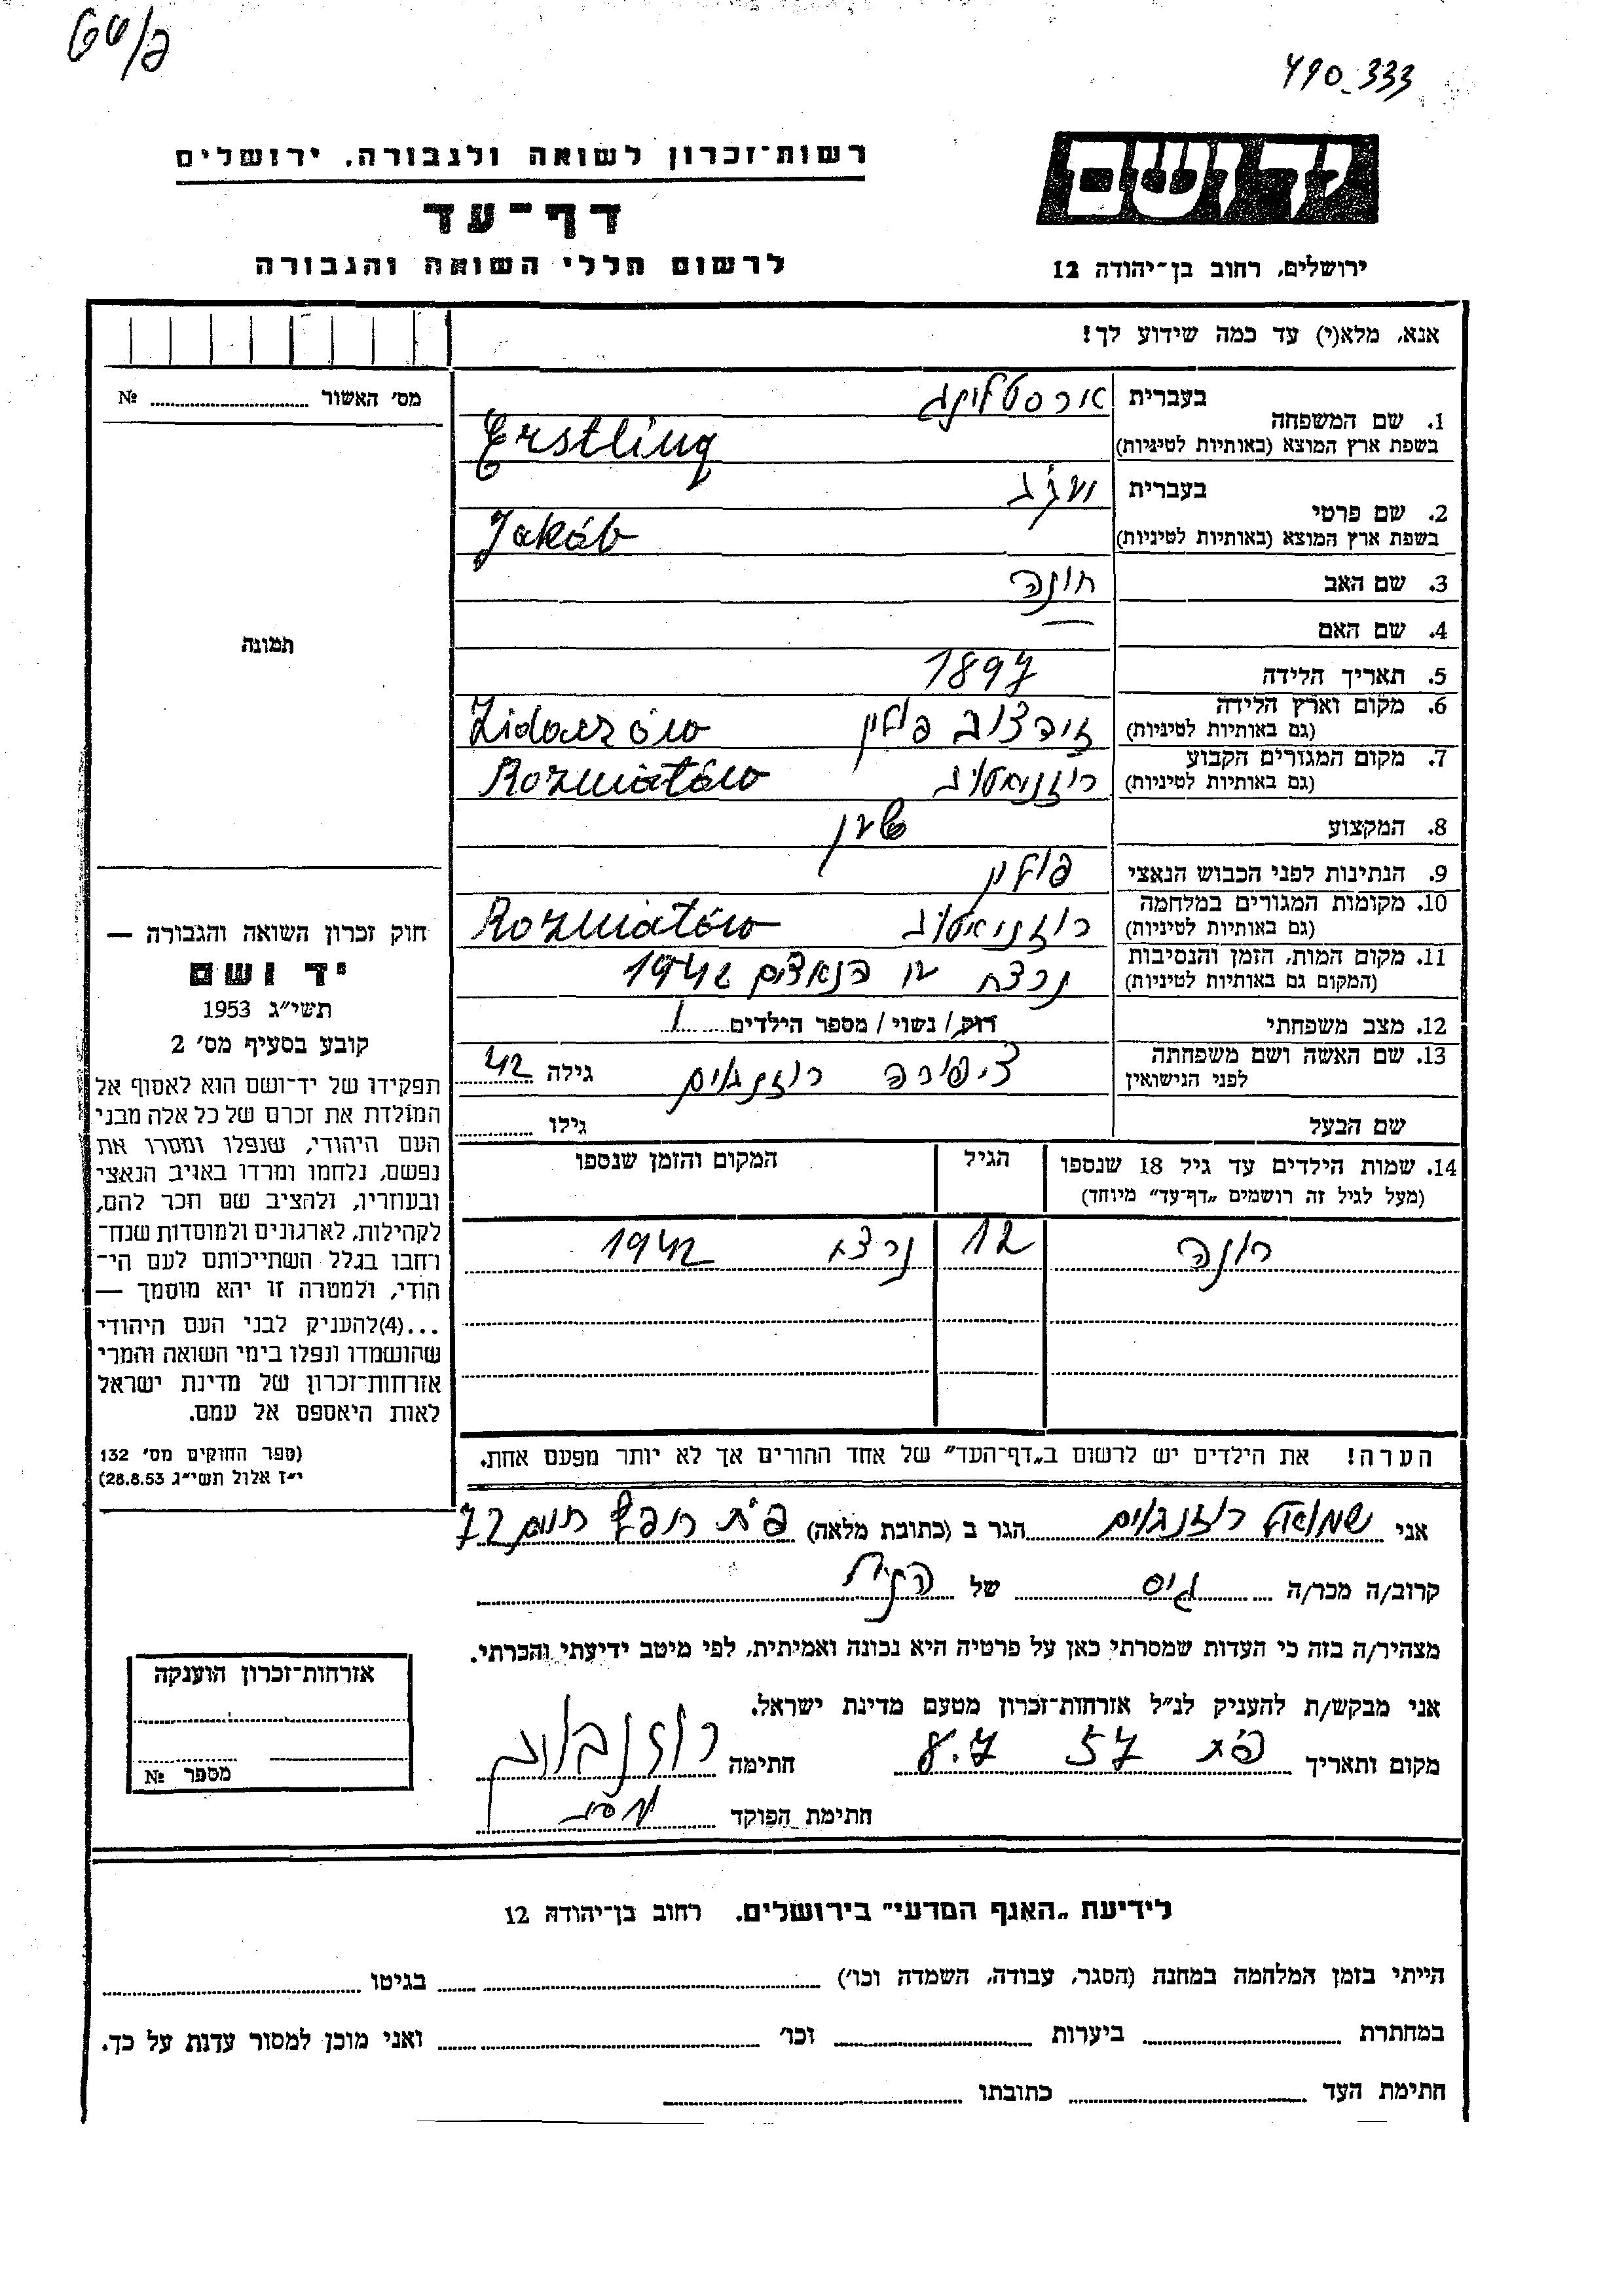 490_333
רשות־זכרון לשואה ולגבורה, ירושלים
יד ושם
דף־עד
לרשום חללי השואה והגבורה
ירושלים, רחוב בן־יהודה 12
אנא, מלא(י) עד כמה שידוע לך!
מס׳ האשור № ........
1. שם המשפחה בעברית ארסטלינג
בשפת ארץ המוצא (באותיות לטיניות) Erstling
2. שם פרטי בעברית יעקב
בשפת ארץ המוצא (באותיות לטיניות) Jakób
3. שם האב חונה
4. שם האם —
5. תאריך הלידה 1897
6. מקום וארץ הלידה (גם באותיות לטיניות) זידצוב פולין Zidaczów
7. מקום המגורים הקבוע (גם באותיות לטיניות) רוזניאטוב Rozniatów
8. המקצוע
9. הנתינות לפני הכבוש הנאצי פולין
10. מקומות המגורים במלחמה (גם באותיות לטיניות) רוזניאטוב Rozniatów
11. מקום המות, הזמן והנסיבות (המקום גם באותיות לטיניות) נרצח ע״י הנאצים 1942
12. מצב משפחתי רוק / נשוי / מספר הילדים 1
13. שם האשה ושם משפחתה לפני הנישואין ציפורה רוזנבוים גילה 42
שם הבעל גילו ........
14. שמות הילדים עד גיל 18 שנספו (מעל לגיל זה רושמים „דף־עד” מיוחד) הגיל המקום והזמן שנספו
רונה 12 נרצח 1942
הערה! את הילדים יש לרשום ב„דף־העד” של אחד ההורים אך לא יותר מפעם אחת.
תמונה
חוק זכרון השואה והגבורה —
יד ושם
תשי״ג 1953
קובע בסעיף מס׳ 2
תפקידו של יד־ושם הוא לאסוף אל
המולדת את זכרם של כל אלה מבני
העם היהודי, שנפלו ומסרו את
נפשם, נלחמו ומרדו באויב הנאצי
ובעוזריו, ולהציב שם וזכר להם,
לקהילות, לארגונים ולמוסדות שנח־
רחבו בגלל השתייכותם לעם הי־
הודי, ולמטרה זו יהא מוסמך —
...(4)להעניק לבני העם היהודי
שהושמדו ונפלו בימי השואה והמרי
אזרחות־זכרון של מדינת ישראל
לאות היאספם אל עמם.
(ספר החוקים מס׳ 132
י״ז אלול תשי״ג 28.8.53)
אני שמואל רוזנבוים הגר ב (כתובת מלאה) פ״ת 72
קרוב/ה מכר/ה גיס של הנ״ל
מצהיר/ה בזה כי העדות שמסרתי כאן על פרטיה היא נכונה ואמיתית, לפי מיטב ידיעתי והכרתי.
אני מבקש/ת להעניק לנ״ל אזרחות־זכרון מטעם מדינת ישראל.
מקום ותאריך פ״ת 57 8.7 חתימה רוזנבוים
חתימת הפוקד
אזרחות־זכרון הוענקה
מספר №
לידיעת „האגף המדעי” בירושלים, רחוב בן־יהודה 12
הייתי בזמן המלחמה במחנה (הסגר, עבודה, השמדה וכו׳) ........ בגיטו ........
במחתרת ........ ביערות ........ וכו׳ ........ ואני מוכן למסור עדות על כך.
חתימת העד ........ כתובתו ........